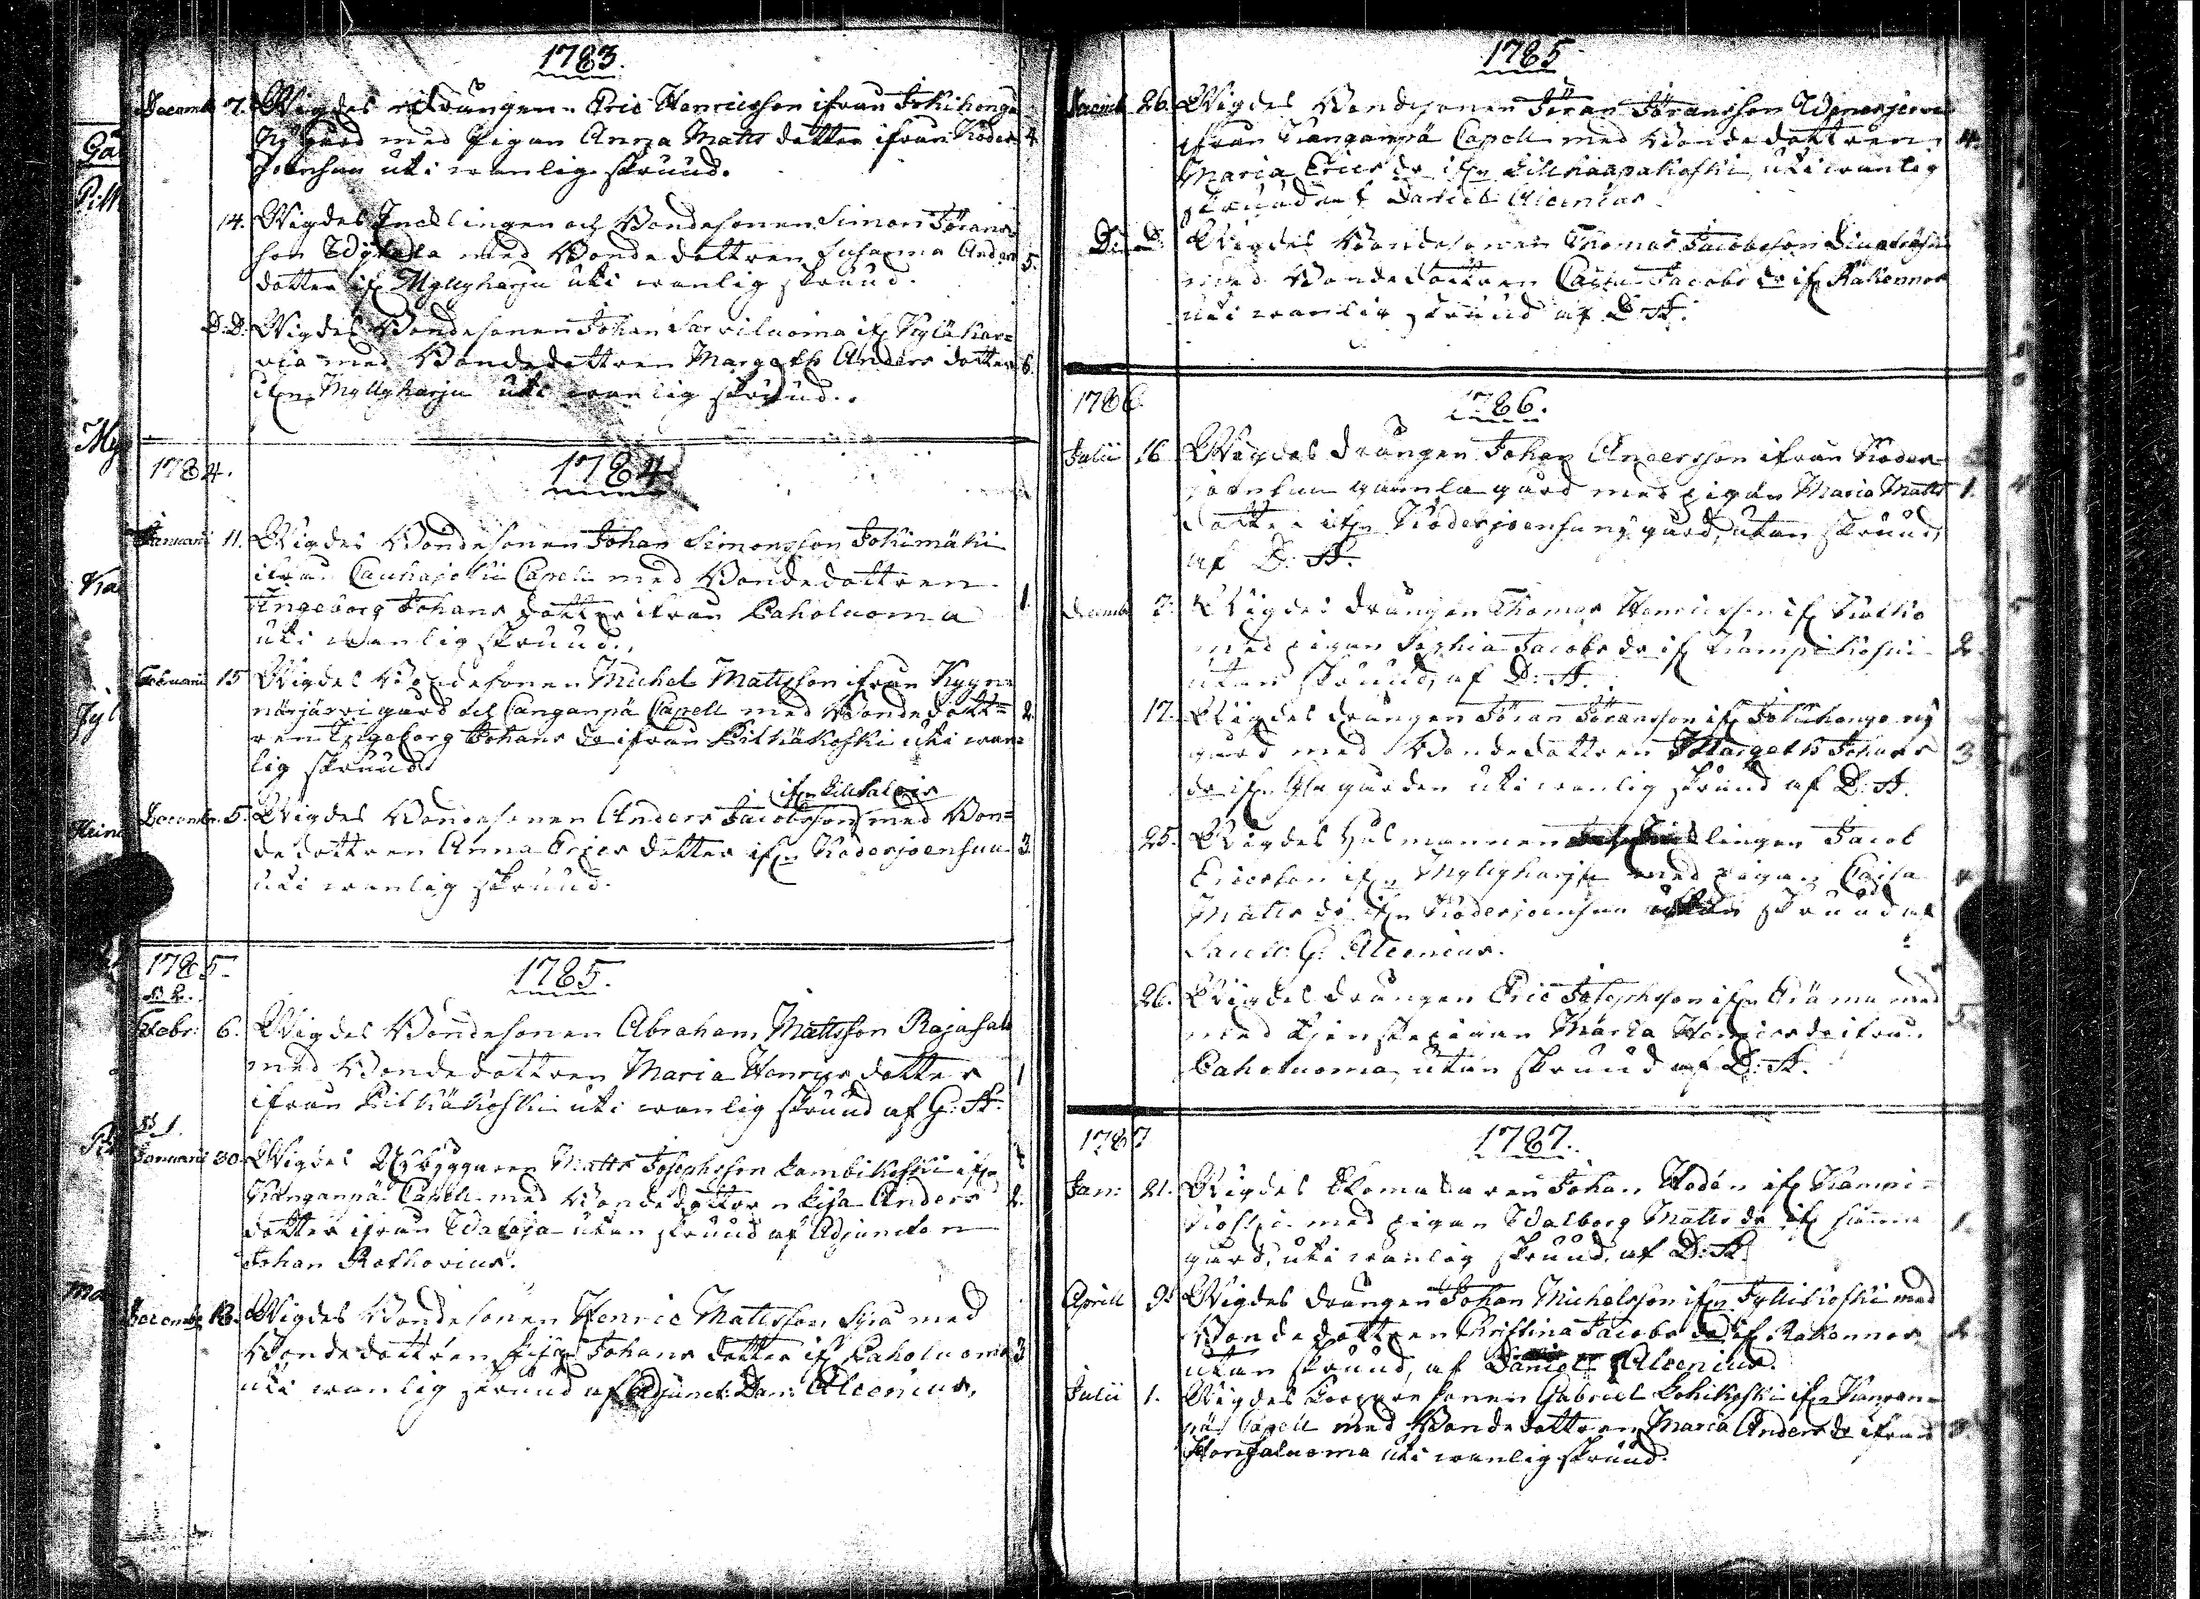 1783.
Decemb. 7. Wigdes drängen Eric Henricsson ifrån Jokihonga
Ny gård med Pigan Anna Matts dotter ifrån Koder 4.
Joensuu uti wanlig skrud.
14. Wigdes Inhslingen och Bondesonen Simon Jörans
son med Bondedottren Susanna Anders 5.
dotter if. Myllyharju uti wanlig skrud.
D:D: Wigdes Bondesonen Johan Sarviluoma if. Kyläkar=
via med Bondedottren Margeth Anders dotter 6.
ifrn Myllyharju uti wanlig skrud.
1784. 1784.
Januarii 11. Wigdes Bondesonen Johan Simonsson Jokimäki
ifrån Cauhajoki Capell med Bondedottren
Ingeborg Johans dotter ifrån Paholuoma 1.
uti wanlig skrud.
Februarii 15 Wigdes Bondesonen Michel Mattsson ifrån Kyyn=
närjärvi gård och Canganpä Capell med Bondedott= 2.
ren Ingeborg Johans dr ifrån Pitkäkoski uti wan=
lig skrud.
ifrn
Decembr. 5. Wigdes Bondesonen Anders Jacobsson med Bon=
dedottren Anna Erics dotter ifrn Koderjoensuu 3.
uti wanlig skrud.
1785. 1785.
N 2.
Febr: 6. Wigdes Bondesonen Abraham Mattsson Rajasalo
med Bondedottren Maria Henrics dotter 1
ifrån Pitkäkoski uti wanlig skrud af G: A.
N 1.
Januarii 30. Wigdes Nybyggaren Matts Josephsson Lambikoski ifrn
Kanganpä Capell med Bondedotter n Lisa Anders 2.
dotter ifrån Wataja utan skrud af Adjuncten
Johan Rothovius.
Decembr 18. Wigdes Bondesonen Henric Mattsson Syrä med
Bondedottren Lisa Johans dotter if. Paholuoma 3
uti wanlig skrud af Adjunct: Dan: Alcenius.
1785
Decemb. 26. Wigdes Bondesonen Jöran Jöransson Wenesjerwi
ifrån Kanganpä Capell med Bondedottren 4.
Maria Erics dr ifrn Lillhaapakoski uti wanlig
skrud af Daniel Alcenius
D: D: Wigdes Bondesonen Thomas Jacobsson
med Bondedottren Caisa Jacobs dr if. Kakonnos
uti wanlig skrud af D: A.
1786. 1786.
Julii 16 Wigdes drängen Johan Andersson ifrån Koder
joensuu gamla gård med pigan Maria Matts 1.
dotter ifrn Koderjoensuu ny gård, utan skrud,
af D: A.
Decemb. 3. Wigdes drängen Thomas Henricsson if.
med pigan Sophia Jacobs dr if Kampikoski 2.
utan skrud, af D: A.
17. Wigdes drängen Jöran Jöransson if. Jokihonga ny
gård med Bondedottren Margeth Johans 3
dr ifrn gården uti wanlig skrud af D: A.
25. Wigdes Husmannen lingen Jacob
Ericsson ifrn Myllyharju med pigan Caisa 4
Matts dr ifrn Koderjoensuu utan skrud af
G: Alcenius.
26. Wigdes drängen Eric Josephsson ifrn med
med tjenstepigan Maria Henrics dr ifrån 5.
Paholuoma, utan skrud af D: A.
1787 1787.
Jan: 21. Wigdes Skomakaren Johan Hodén if. Kampi=
koski med pigan Walborg Matts dr if. samma 1.
gård, uti wanlig skrud, af D: A.
Aprill 9. Wigdes drängen Johan Michelsson ifrn Jyllikoski med
Bondedottren Christina Jacobs dr if. Kakonnos 2.
utan skrud, af Daniel Alcenius.
Julii 1. Wigdes Torpare sonen Gabriel Lohikoski ifrn Kangan=
pä Capell med Bondedottren Maria Anders dr ifrån 3
Korsaluoma uti wanlig skrud.